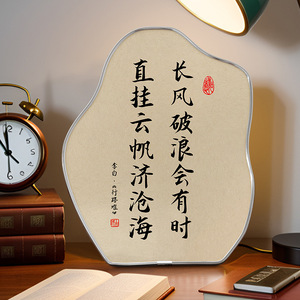 长风破浪会有时
直挂云帆济沧海
李白·《行路难》